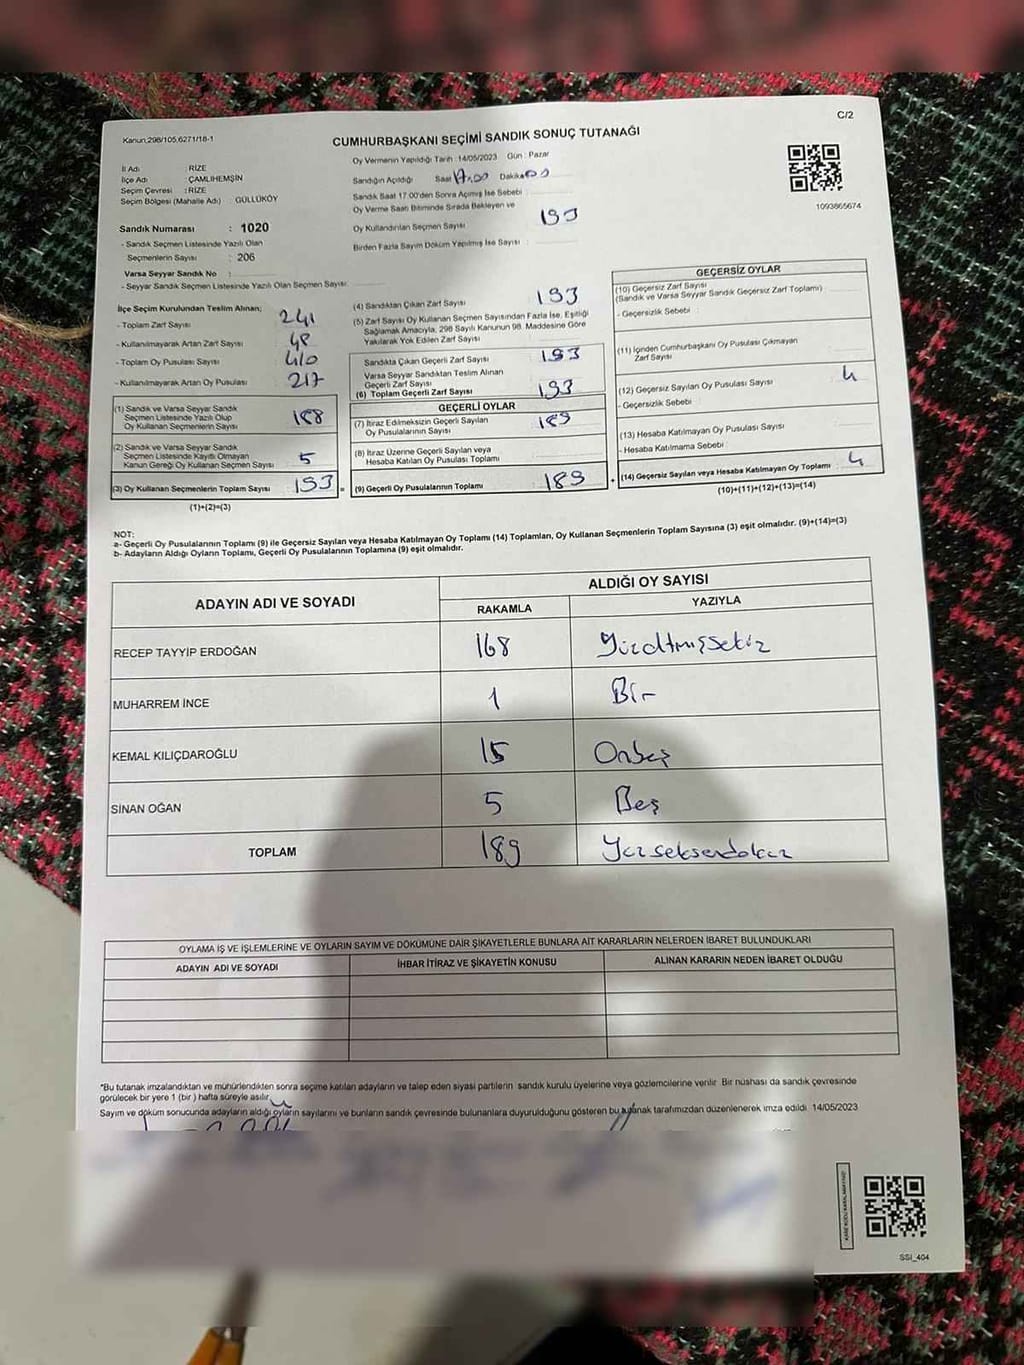 C/2
Kanun,298/105,6271/18-1
CUMHURBAŞKANI SEÇİMİ SANDIK SONUÇ TUTANAĞI
İl Adı : RİZE
İlçe Adı : ÇAMLIHEMŞİN
Seçim Çevresi : RİZE
Seçim Bölgesi (Mahalle Adı) : GÜLLÜKÖY
Sandık Numarası : 1020
- Sandık Seçmen Listesinde Yazılı Olan
Seçmenlerin Sayısı : 206
Varsa Seyyar Sandık No :
- Seyyar Sandık Seçmen Listesinde Yazılı Olan Seçmen Sayısı:
Oy Vermenin Yapıldığı Tarih : 14/05/2023 Gün : Pazar
Sandığın Açıldığı Saat 17.00 Dakika 00
Sandık Saat 17.00'den Sonra Açılmış İse Sebebi :
Oy Verme Saati Bitiminde Sırada Bekleyen ve
Oy Kullandırılan Seçmen Sayısı 193
Birden Fazla Sayım Döküm Yapılmış İse Sayısı :
1093865674
İlçe Seçim Kurulundan Teslim Alınan;
- Toplam Zarf Sayısı 241
- Kullanılmayarak Artan Zarf Sayısı 48
- Toplam Oy Pusulası Sayısı 410
- Kullanılmayarak Artan Oy Pusulası 217
(1) Sandık ve Varsa Seyyar Sandık
Seçmen Listesinde Yazılı Olup
Oy Kullanan Seçmenlerin Sayısı 188
(2) Sandık ve Varsa Seyyar Sandık
Seçmen Listesinde Kayıtlı Olmayan
Kanun Gereği Oy Kullanan Seçmen Sayısı 5
(3) Oy Kullanan Seçmenlerin Toplam Sayısı 193 =
(1)+(2)=(3)
(4) Sandıktan Çıkan Zarf Sayısı 193
(5) Zarf Sayısı Oy Kullanan Seçmen Sayısından Fazla İse, Eşitliği
Sağlamak Amacıyla, 298 Sayılı Kanunun 98. Maddesine Göre
Yakılarak Yok Edilen Zarf Sayısı :
Sandıkta Çıkan Geçerli Zarf Sayısı 193
Varsa Seyyar Sandıktan Teslim Alınan
Geçerli Zarf Sayısı
(6) Toplam Geçerli Zarf Sayısı 193
GEÇERLİ OYLAR
(7) İtiraz Edilmeksizin Geçerli Sayılan
Oy Pusulalarının Sayısı 189
(8) İtiraz Üzerine Geçerli Sayılan veya
Hesaba Katılan Oy Pusulası Toplamı
(9) Geçerli Oy Pusulalarının Toplamı 189 +
GEÇERSİZ OYLAR
(10) Geçersiz Zarf Sayısı
(Sandık ve Varsa Seyyar Sandık Geçersiz Zarf Toplamı)
- Geçersizlik Sebebi :
(11) İçinden Cumhurbaşkanı Oy Pusulası Çıkmayan
Zarf Sayısı
(12) Geçersiz Sayılan Oy Pusulası Sayısı 4
- Geçersizlik Sebebi :
(13) Hesaba Katılmayan Oy Pusulası Sayısı
- Hesaba Katılmama Sebebi :
(14) Geçersiz Sayılan veya Hesaba Katılmayan Oy Toplamı 4
(10)+(11)+(12)+(13)=(14)
NOT:
a- Geçerli Oy Pusulalarının Toplamı (9) ile Geçersiz Sayılan veya Hesaba Katılmayan Oy Toplamı (14) Toplamları, Oy Kullanan Seçmenlerin Toplam Sayısına (3) eşit olmalıdır. (9)+(14)=(3)
b- Adayların Aldığı Oyların Toplamı, Geçerli Oy Pusulalarının Toplamına (9) eşit olmalıdır.
ADAYIN ADI VE SOYADI
ALDIĞI OY SAYISI
RAKAMLA YAZIYLA
RECEP TAYYİP ERDOĞAN 168 Yüzaltmışsekiz
MUHARREM İNCE 1 Bir
KEMAL KILIÇDAROĞLU 15 Onbeş
SİNAN OĞAN 5 Beş
TOPLAM 189 Yüzseksendokuz
OYLAMA İŞ VE İŞLEMLERİNE VE OYLARIN SAYIM VE DÖKÜMÜNE DAİR ŞİKAYETLERLE BUNLARA AİT KARARLARIN NELERDEN İBARET BULUNDUKLARI
ADAYIN ADI VE SOYADI İHBAR İTİRAZ VE ŞİKAYETİN KONUSU ALINAN KARARIN NEDEN İBARET OLDUĞU
*Bu tutanak imzalandıktan ve mühürlendikten sonra seçime katılan adayların ve talep eden siyasi partilerin sandık kurulu üyelerine veya gözlemcilerine verilir. Bir nüshası da sandık çevresinde
görülecek bir yere 1 (bir) hafta süreyle asılır.
Sayım ve döküm sonucunda adayların aldığı oyların sayılarını ve bunların sandık çevresinde bulunanlara duyurulduğunu gösteren bu tutanak tarafımızdan düzenlenerek imza edildi 14/05/2023
SSİ_404